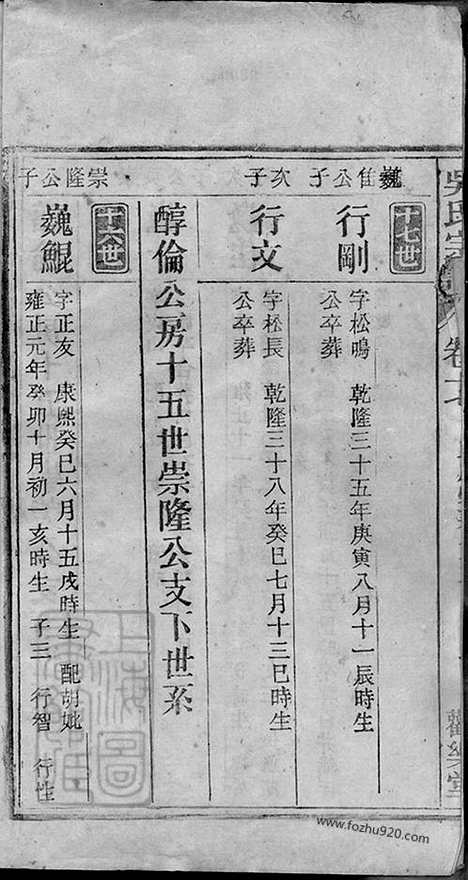 吳氏宗
巍隹公子
十七世
行剛
字松鳴 乾隆三十五年庚寅八月十一辰時生
公卒葬
次子
行文
字松長 乾隆三十八年癸巳七月十三巳時生
公卒葬
醇倫公房十五世崇隆公支下世系
崇隆公子
十六世
巍鯤
字正友 康熙癸巳六月十五戌時生 配胡妣
雍正元年癸卯十月初一亥時生 子三 行智 行性
上海圖
www.fozhu920.com